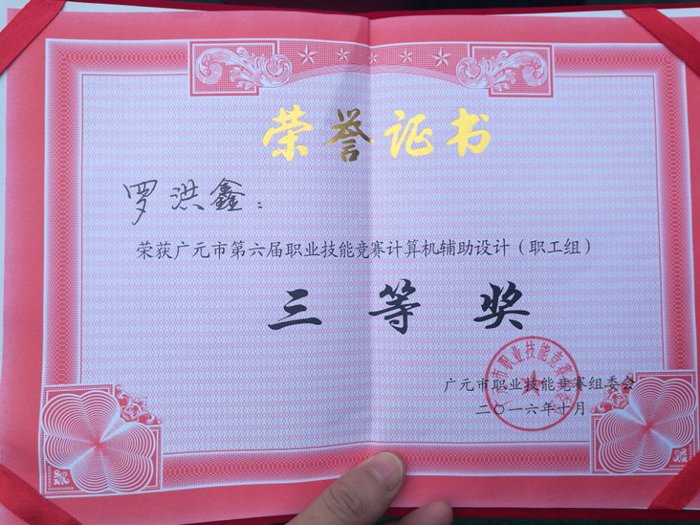 荣誉证书
罗洪鑫：
荣获广元市第六届职业技能竞赛计算机辅助设计（职工组）
三等奖
广元市职业技能竞赛组委会
二〇一六年十月